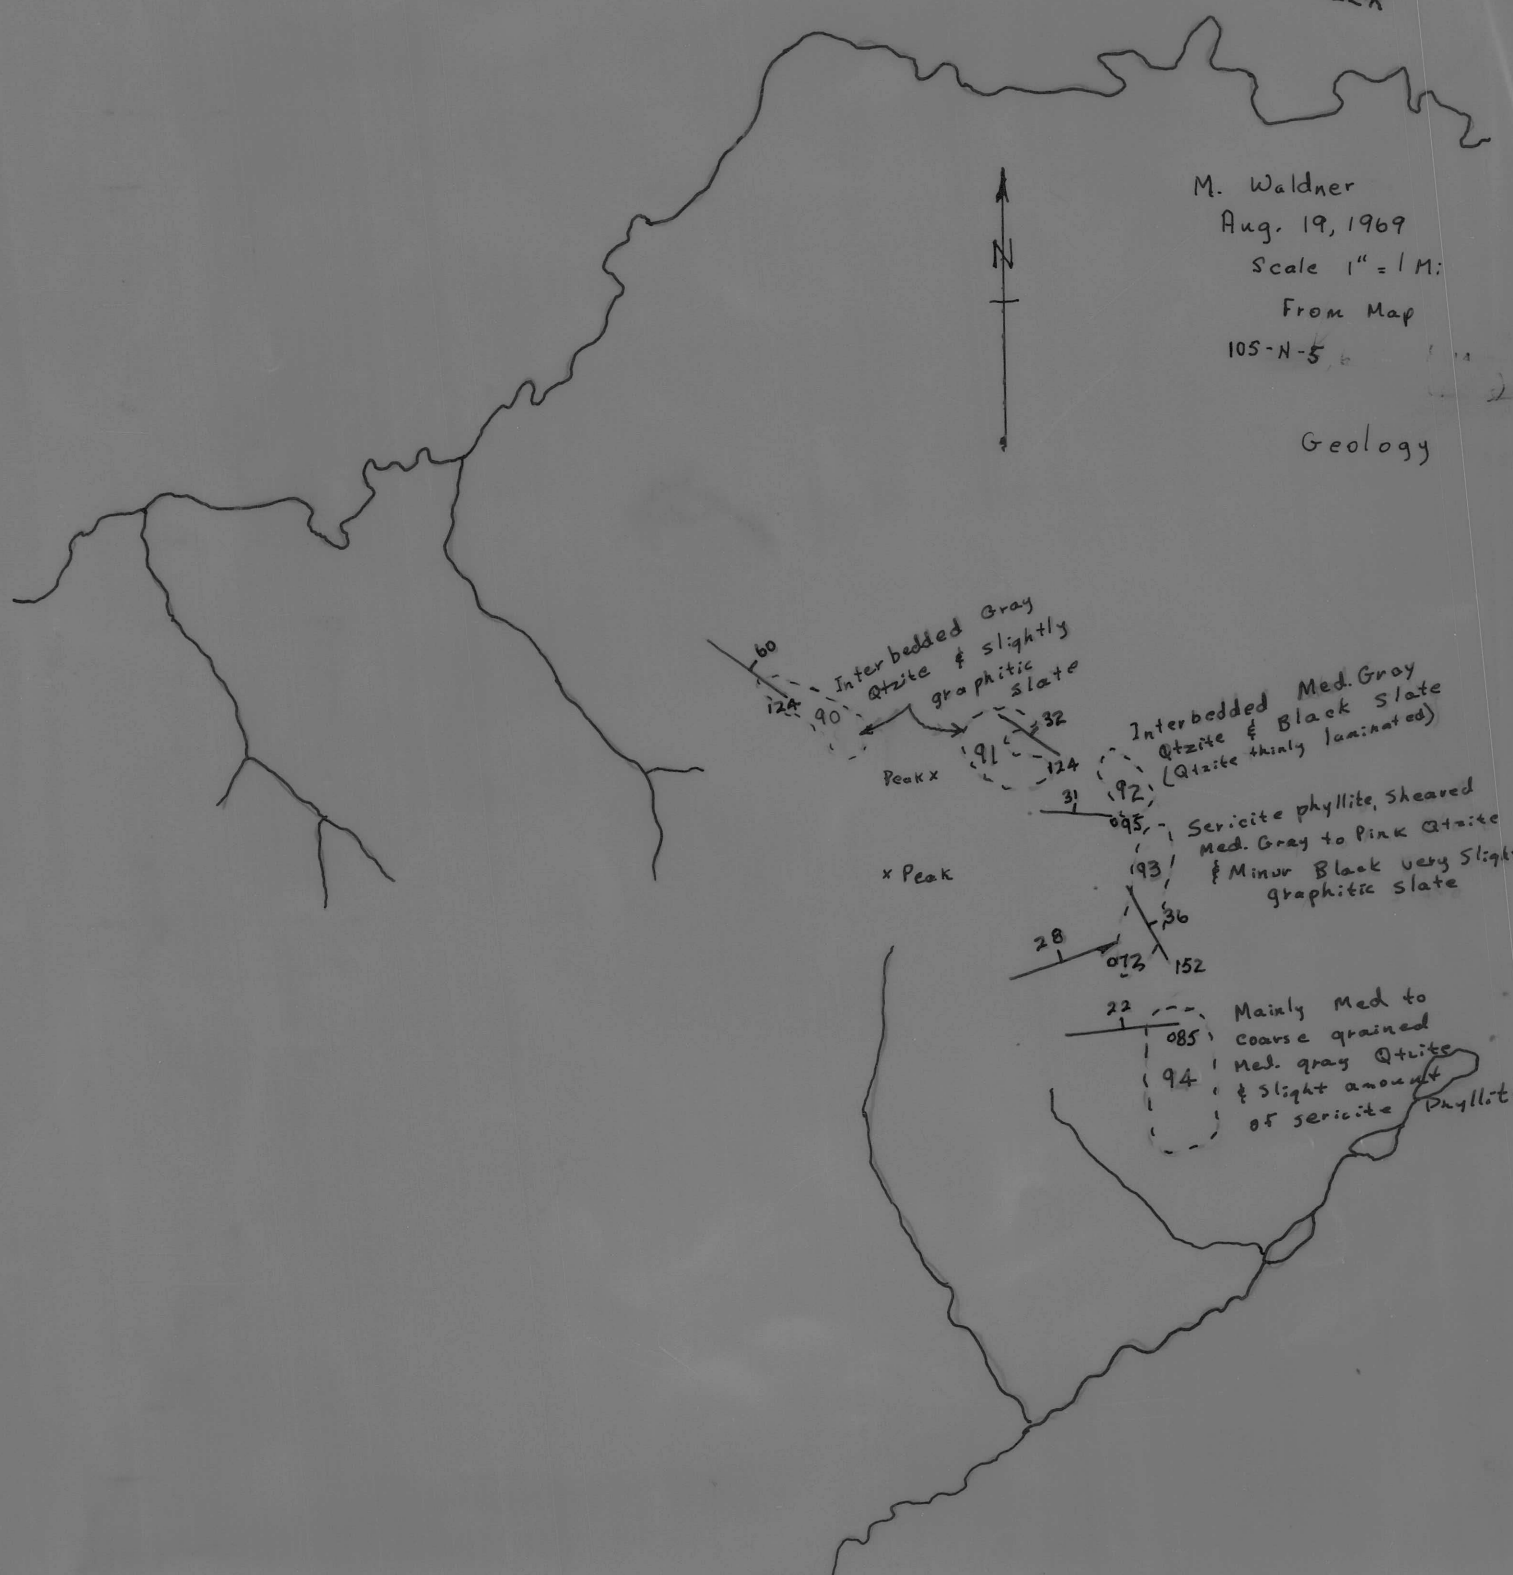 M. Waldner
Aug. 19, 1969
Scale 1" = 1 Mi
From Map
105-N-5
N
Geology
60
124
90
Interbedded Gray
Qtzite & slightly
graphitic
slate
32
91
124
Peak x
Interbedded Med. Gray
Qtzite & Black Slate
(Qtzite thinly laminated)
92
31
095
Sericite phyllite, Sheared
Med. Gray to Pink Qtzite
& Minor Black very
graphitic slate
93
x Peak
36
28
073
152
22
085
94
Mainly Med to
coarse grained
Med. gray Qtzite
& Slight amount
of sericite